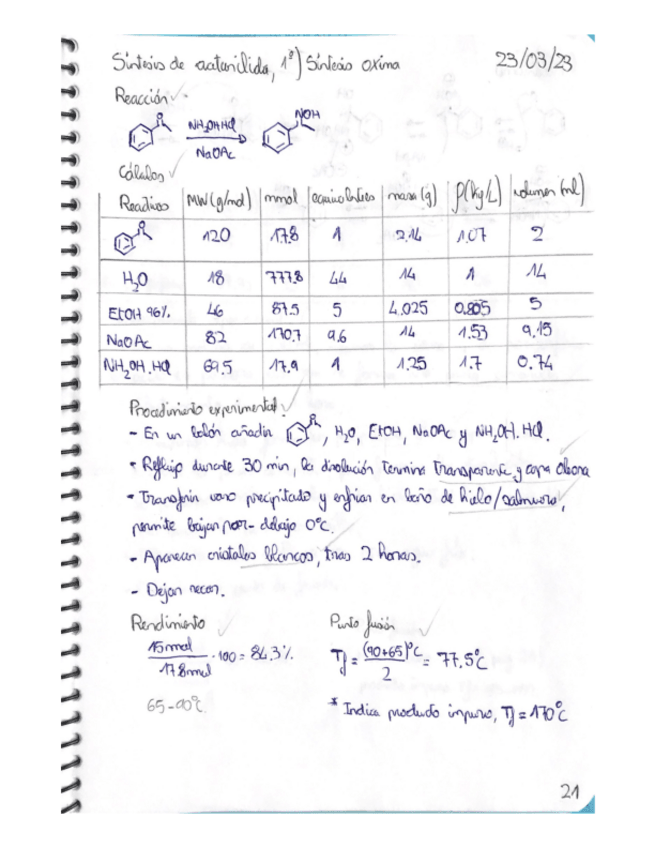 Síntesis de acetanilida, 1º) Síntesis oxima 23/03/23
Reacción
O NH2OH HCl NOH
NaOAc
Cálculos
Reactivos MW (g/mol) mmol equivalentes masa (g) ρ(kg/L) volumen (ml)
O 120 17.8 1 2,14 1.07 2
H2O 18 777.8 44 14 1 14
EtOH 96% 46 87.5 5 4.025 0.805 5
NaOAc 82 170.7 9.6 14 1.53 9.15
NH2OH.HCl 69.5 17.9 1 1.25 1.7 0.74
Procedimiento experimental
- En un balón añadir , H2O, EtOH, NaOAc y NH2OH.HCl.
- Reflujo durante 30 min, la disolución termina transparente y capa oleosa
- Transferir vaso precipitado y enfriar en baño de hielo/salmuera,
permite bajar por-debajo 0ºC.
- Aparecen cristales blancos, tras 2 horas.
- Dejar secar.
Rendimiento Punto fusión
15mmol / 17.8mmol · 100 = 84,3% Tf = (90+65)ºC / 2 = 77.5ºC
65-90ºC
* Indica producto impuro, Tf = 170ºC
21